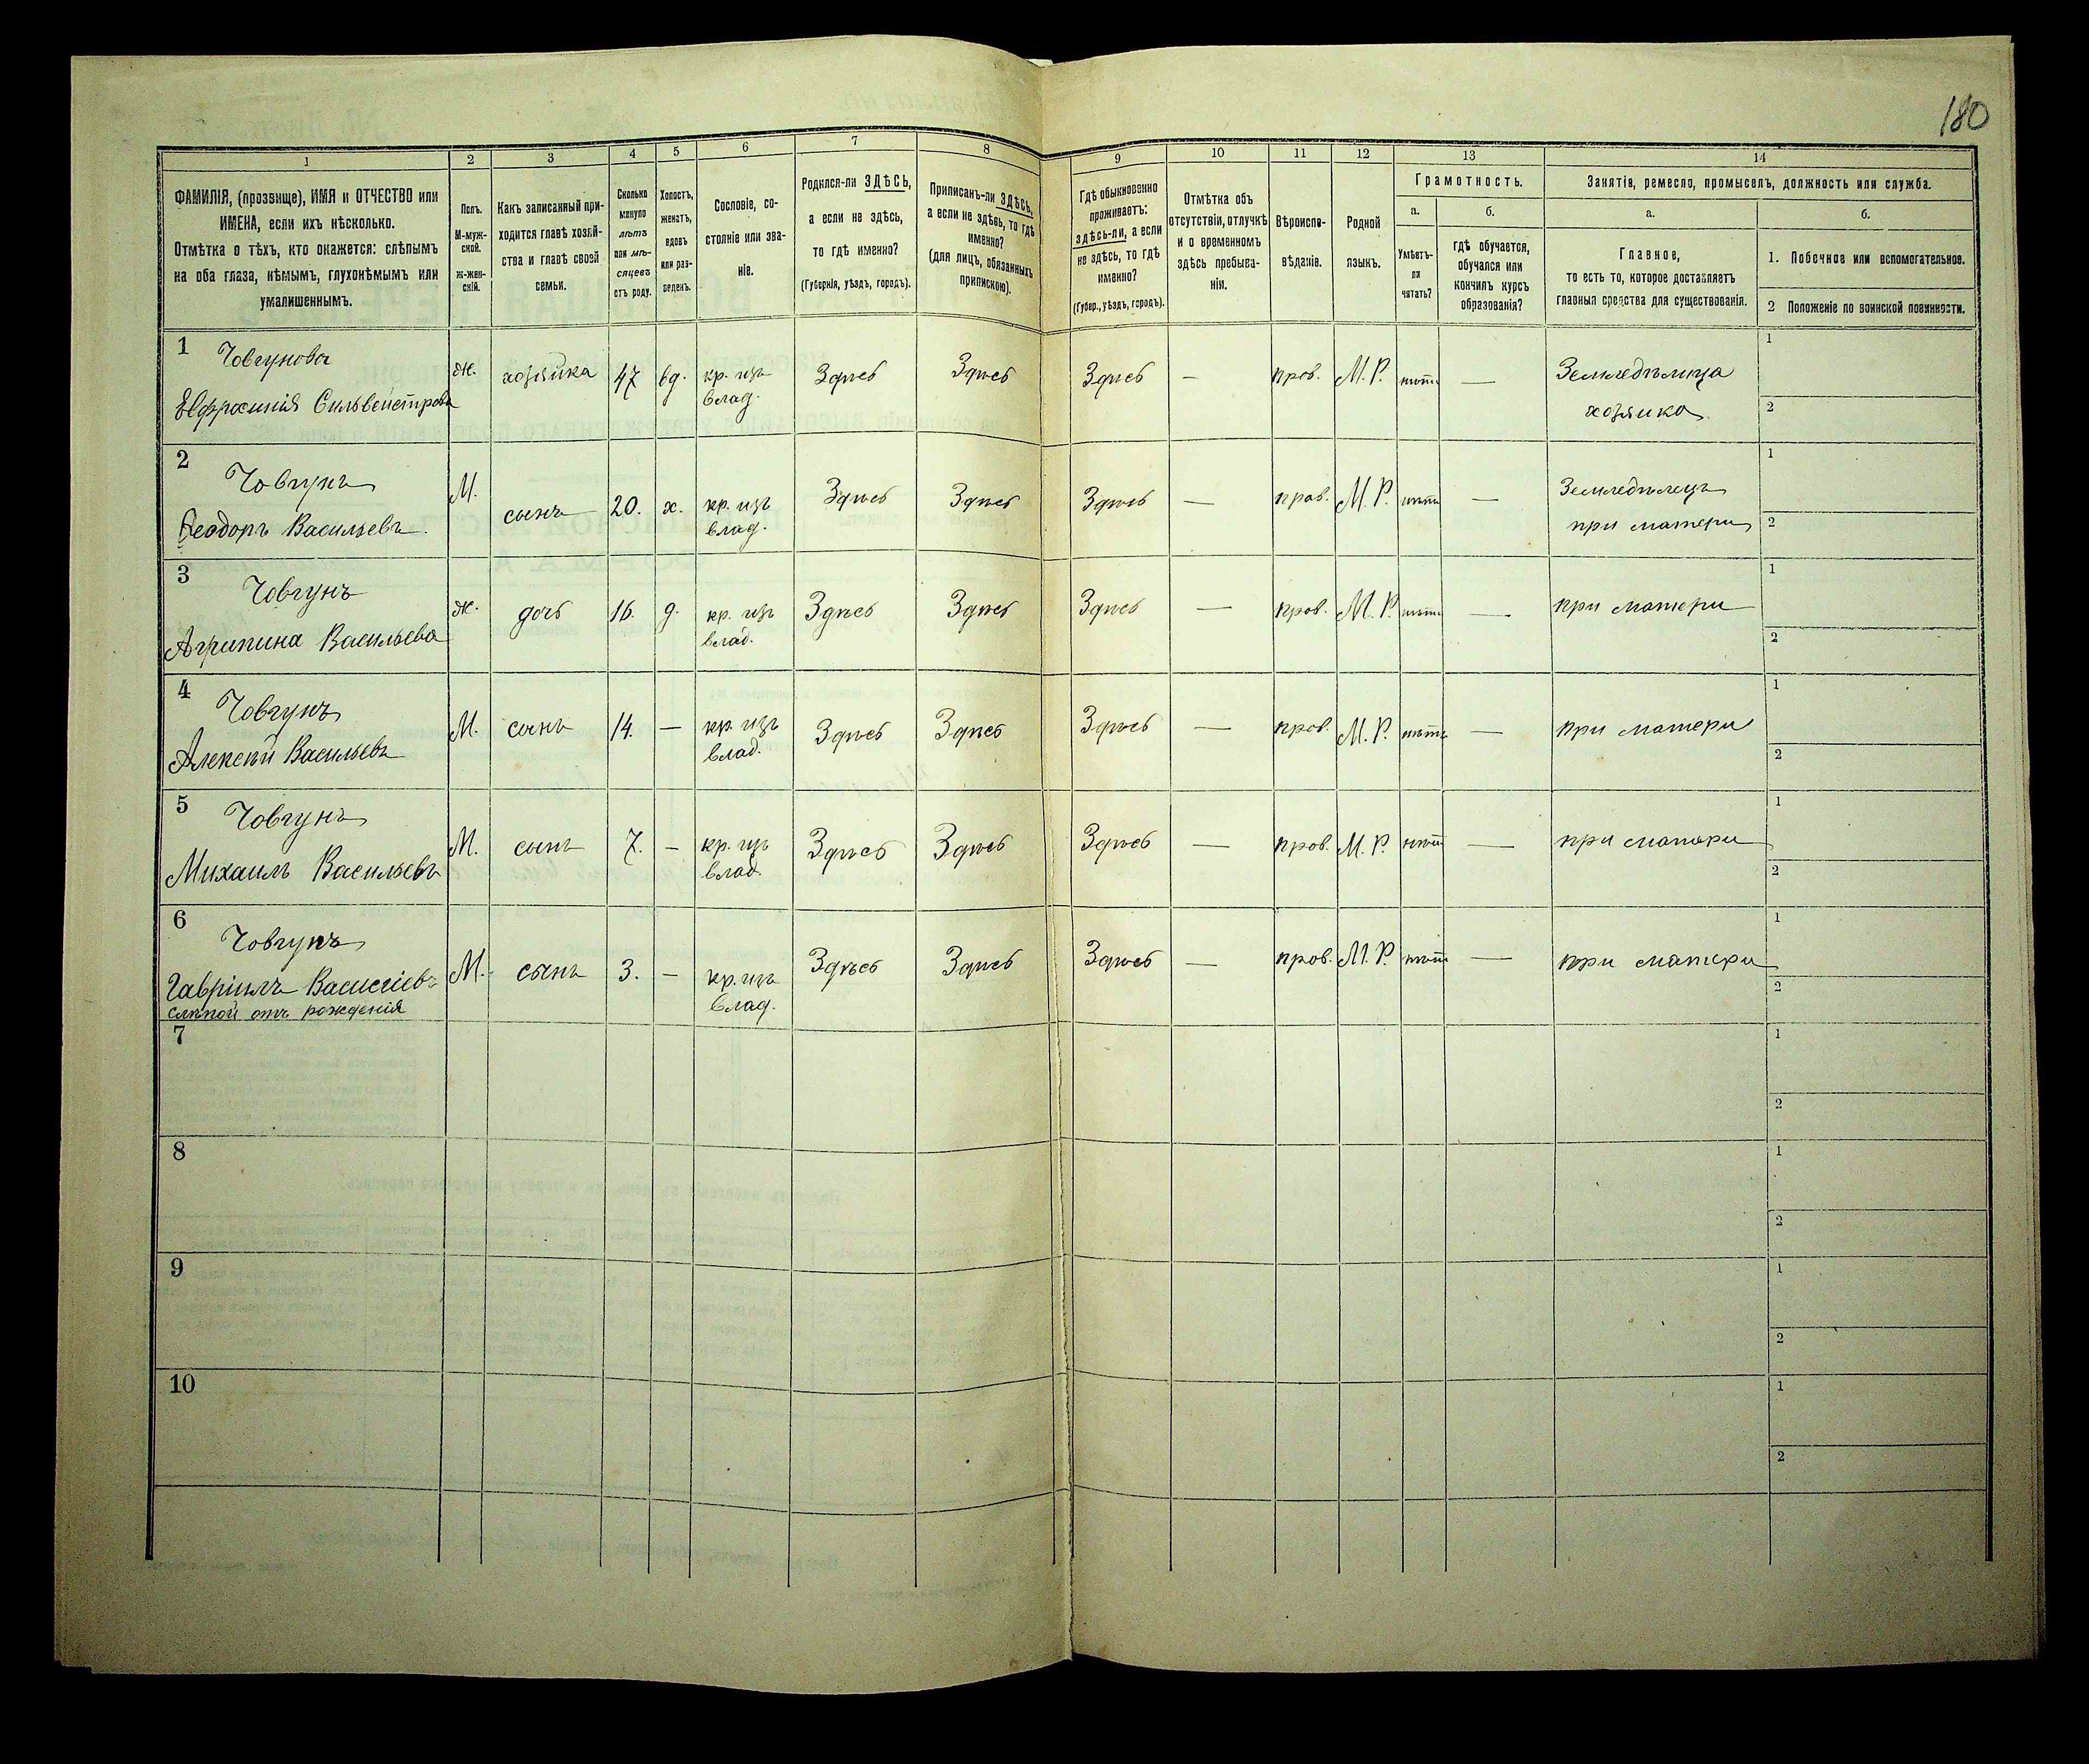 180
1 2 3 4 5 6 7 8 9 10 11 12 13 14
ФАМИЛІЯ, (прозвище), ИМЯ и ОТЧЕСТВО или
ИМЕНА, если ихъ нѣсколько.
Отмѣтка о тѣхъ, кто окажется: слѣпымъ
на оба глаза, нѣмымъ, глухонѣмымъ или
умалишеннымъ.
Полъ.
М-муж-
ской.
Ж-жен-
скій.
Какъ записанный при-
ходится главѣ хозяй-
ства и главѣ своей
семьи.
Сколько
минуло
лѣтъ
или мѣ-
сяцевъ
отъ роду.
Холостъ,
женатъ,
вдовъ
или раз-
веденъ.
Сословіе, со-
стояніе или зва-
ніе.
Родился-ли ЗДѢСЬ,
а если не здѣсь,
то гдѣ именно?
(Губернія, уѣздъ, городъ).
Приписанъ-ли ЗДѢСЬ,
а если не здѣсь, то гдѣ
именно?
(для лицъ, обязанныхъ
припискою).
Гдѣ обыкновенно
проживаетъ:
здѣсь-ли, а если
не здѣсь, то гдѣ
именно?
(Губер., уѣздъ, городъ).
Отмѣтка объ
отсутствіи, отлучкѣ
и о временномъ
здѣсь пребыва-
ніи.
Вѣроиспо-
вѣданіе.
Родной
языкъ.
Грамотность.
а.
Умѣетъ-
ли
читать?
б.
гдѣ обучается,
обучался или
кончилъ курсъ
образованія?
Занятія, ремесло, промыселъ, должность или служба.
а.
Главное,
то есть то, которое доставляетъ
главныя средства для существованія.
б.
1. Побочное или вспомогательное.
2 Положеніе по воинской повинности.
1 Човгунова
Евфросинія Сильвейстрова ж. хозяйка 47 вд. кр. изъ влад. Здѣсь Здѣсь Здѣсь — прав. М. Р. нѣтъ — Земледѣлица
хозяйка
1
2
2 Човгунъ
Ѳеодоръ Васильевъ. М. сынъ 20. х. кр. изъ влад. Здѣсь Здѣсь Здѣсь — прав. М. Р. нѣтъ — Земледѣлецъ
при матери
1
2
3 Човгунъ
Агрипина Васильева ж. дочь 16. д. кр. изъ влад. Здѣсь Здѣсь Здѣсь — прав. М. Р. нѣтъ — при матери
1
2
4 Човгунъ
Алексѣй Васильевъ М. сынъ 14. — кр. изъ влад. Здѣсь Здѣсь Здѣсь — прав. М. Р. нѣтъ — при матери
1
2
5 Човгунъ
Михаилъ Васильевъ М. сынъ 7. — кр. изъ влад. Здѣсь Здѣсь Здѣсь — прав. М. Р. нѣтъ — при матери
1
2
6 Човгунъ
Гавріилъ Васильевъ М. сынъ 3. — кр. изъ влад. Здѣсь Здѣсь Здѣсь — прав. М. Р. нѣтъ — при матери
слѣпой отъ рожденія
1
2
7
1
2
8
1
2
9
1
2
10
1
2